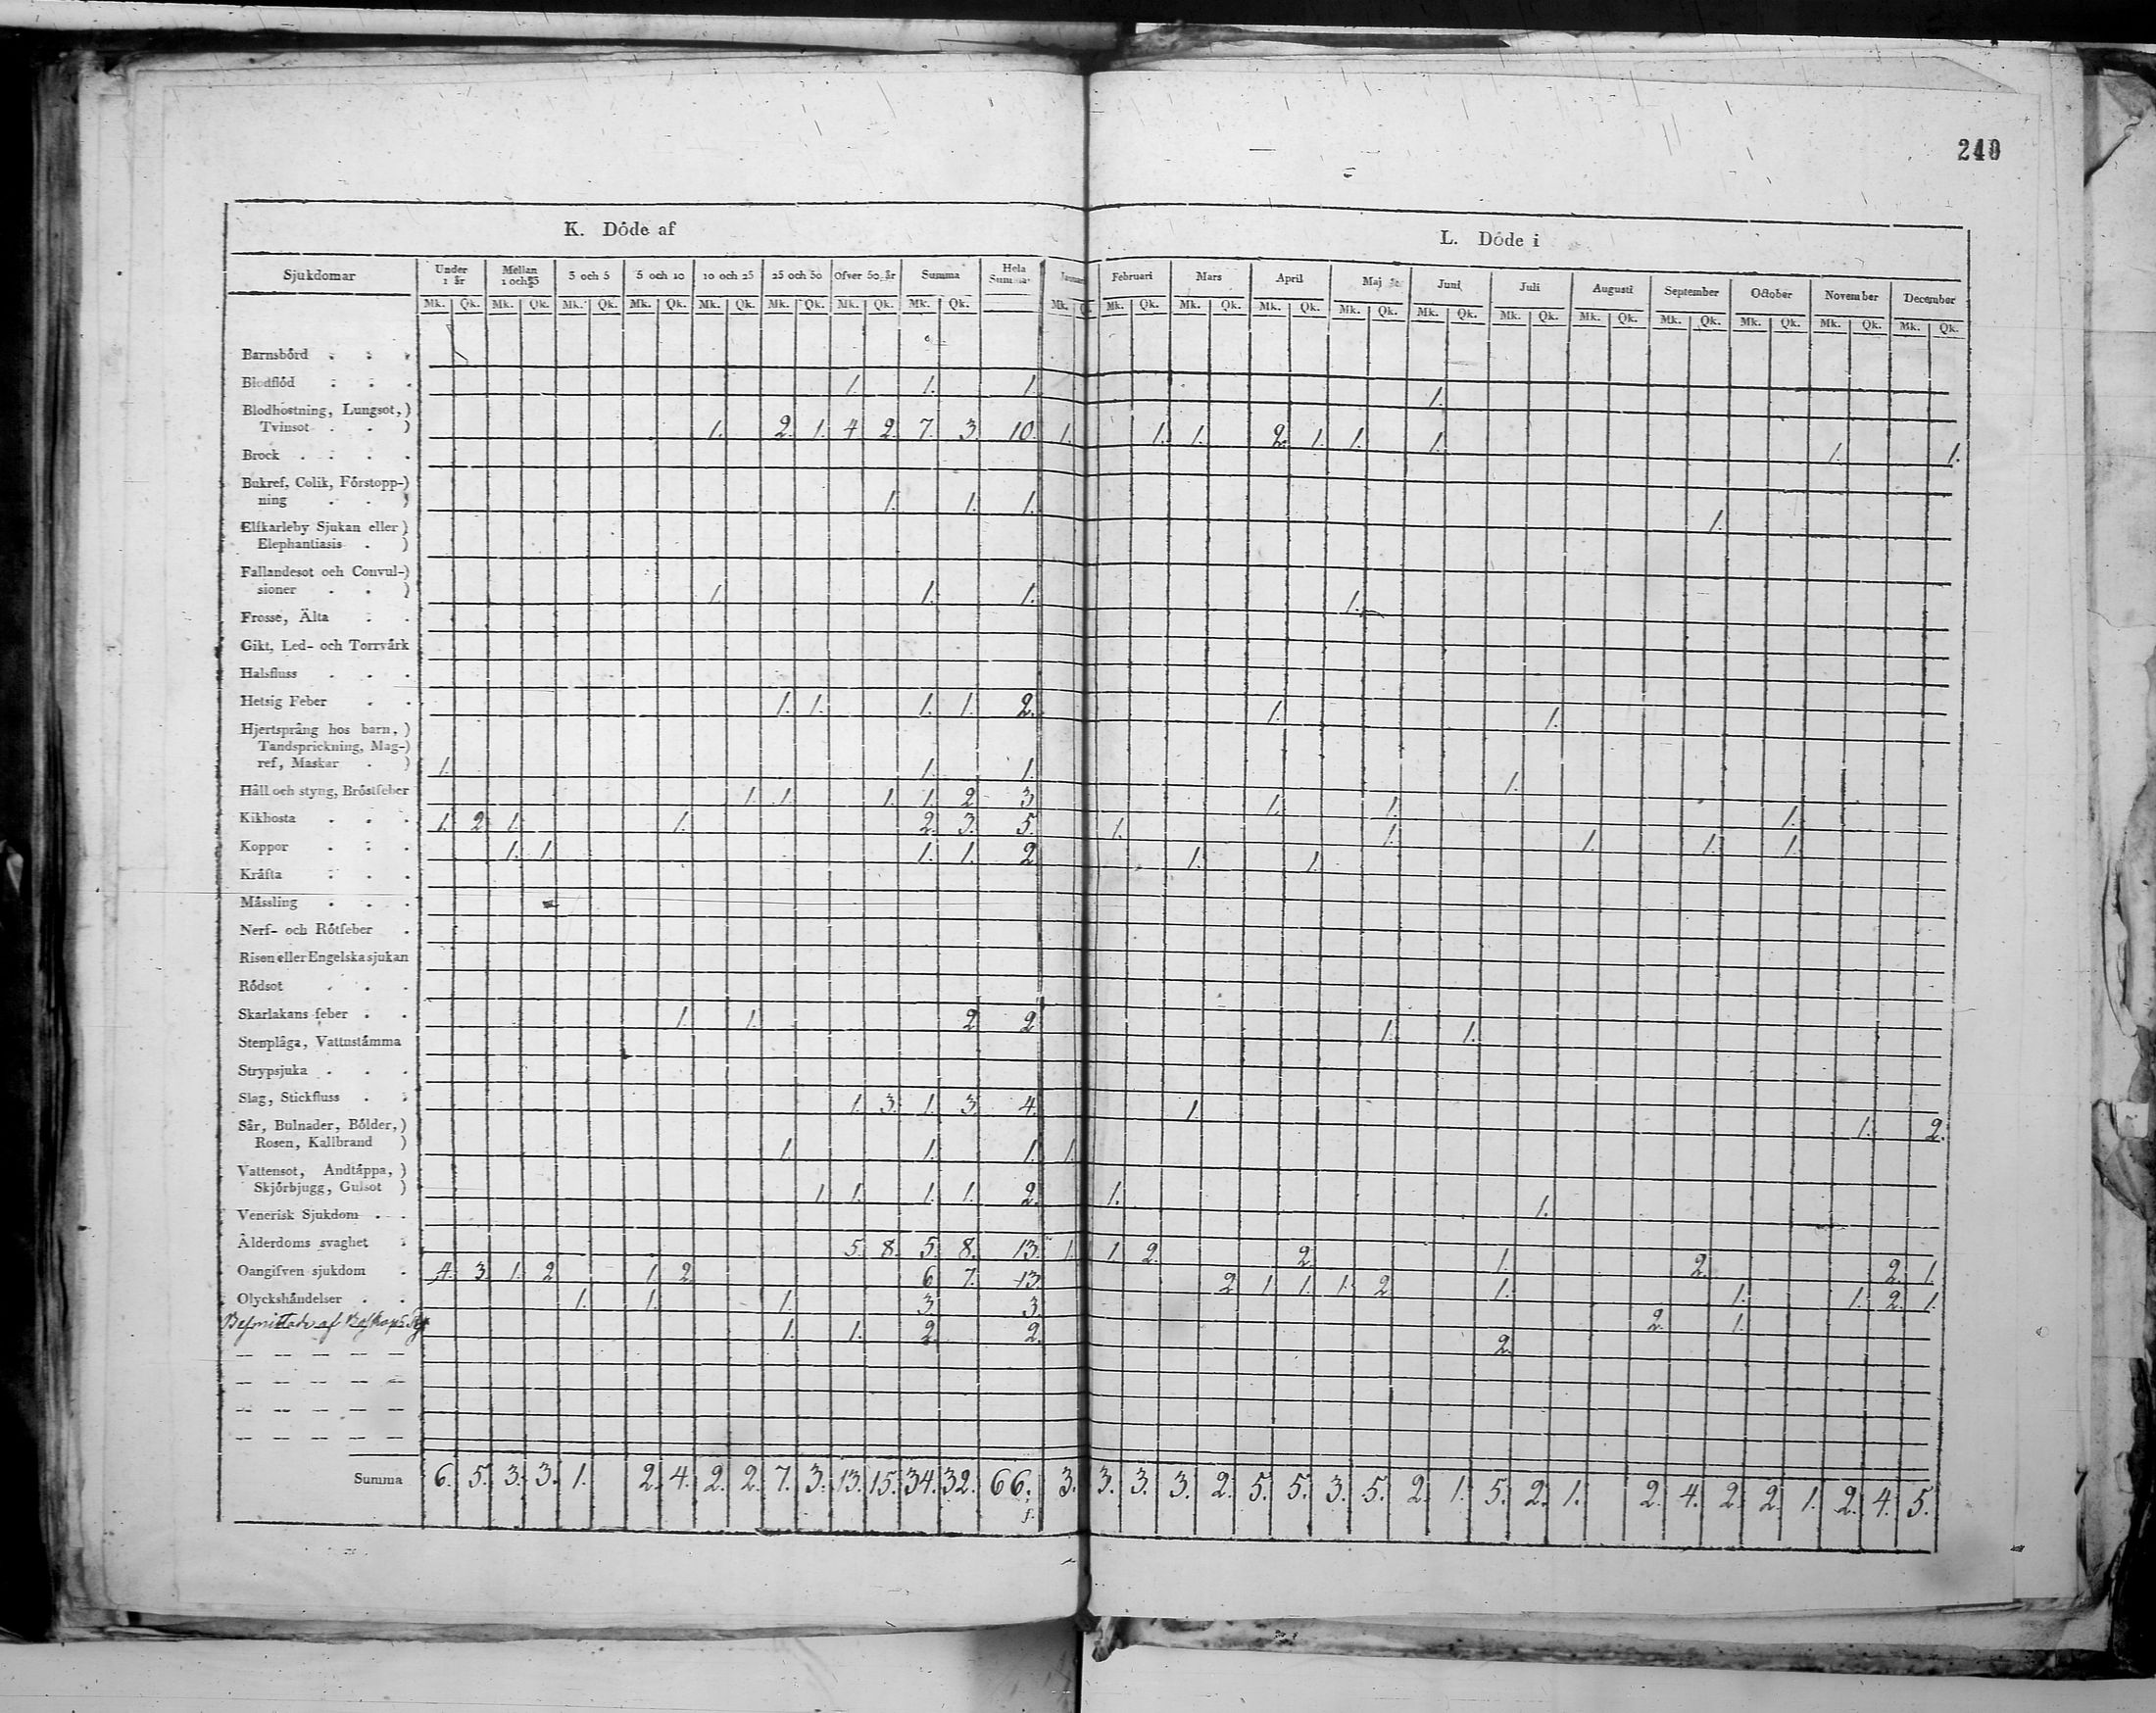 240
K. Döde af
L. Döde i
Sjukdomar Under 1 år Mellan 1 och 3 3 och 5 5 och 10 10 och 25 25 och 50 Öfver 50 år Summa Hela Summa Februari Mars April Maj Juni Juli Augusti September October November December
Mk. Qk. Mk. Qk. Mk. Qk. Mk. Qk. Mk. Qk. Mk. Qk. Mk. Qk. Mk. Qk. Mk. Mk. Qk. Mk. Qk. Mk. Qk. Mk. Qk. Mk. Qk. Mk. Qk. Mk. Qk. Mk. Qk. Mk. Qk. Mk. Qk. Mk. Qk.
Barnsbörd . . .
Blodflöd . . . 1. 1. 1. 1.
Blodhostning, Lungsot,)
Tvinsot . . ) 1. 2. 1. 4 2. 7. 3. 10. 1. 1. 1. 2. 1. 1. 1. 1. 1.
Brock . . . .
Bukref, Colik, Förstopp-)
ning . . ) 1. 1. 1. 1.
Elfkarleby Sjukan eller)
Elephantiasis . )
Fallandesot och Convul-)
sioner . . ) 1. 1. 1. 1.
Frosse, Älta . .
Gikt, Led- och Torrvärk
Halsfluss . . .
Hetsig Feber . . 1. 1. 1. 1. 2. 1. 1.
Hjertsprång hos barn, )
Tandsprickning, Mag-)
ref, Maskar . ) 1. 1. 1. 1.
Håll och styng, Bröstfeber 1. 1. 1. 1. 2 3. 1. 1. 1.
Kikhosta . . . 1. 2. 1. 1. 2. 3. 5. 1. 1. 1. 1. 1.
Koppor . . . 1. 1. 1. 1. 2 1. 1.
Kräfta . . .
Mässling . . .
Nerf- och Rötfeber .
Risen eller Engelska sjukan
Rödsot . . .
Skarlakans feber . . 1. 1. 2 2 1. 1.
Stenplåga, Vattustämma
Strypsjuka . . .
Slag, Stickfluss . . 1. 3. 1. 3. 4. 1. 1. 2.
Sår, Bulnader, Bölder,)
Rosen, Kallbrand ) 1. 1. 1. 1.
Vattensot, Andtäppa, )
Skjörbjugg, Gulsot ) 1. 1. 1. 1. 2. 1. 1.
Venerisk Sjukdom . .
Ålderdoms svaghet . 5. 8. 5. 8. 13. 1. 1. 2. 2. 1. 2. 2. 1.
Oangifven sjukdom . 4. 3. 1. 2 1. 2 6. 7. 13. 2 1. 1. 1. 2 1. 1. 1. 2. 1.
Olyckshändelser . . 1. 1. 1. 3 3. 2. 1.
Besmittade af Boskaps 1. 1. 2. 2. 2.
Summa 6. 5. 3. 3. 1. 2. 4. 2. 2. 7. 3. 13. 15. 34. 32. 66. 3. 3. 3. 3. 2. 5. 5. 3. 5. 2. 1. 5. 2. 1. 2. 4. 2. 2. 1. 2. 4. 5.